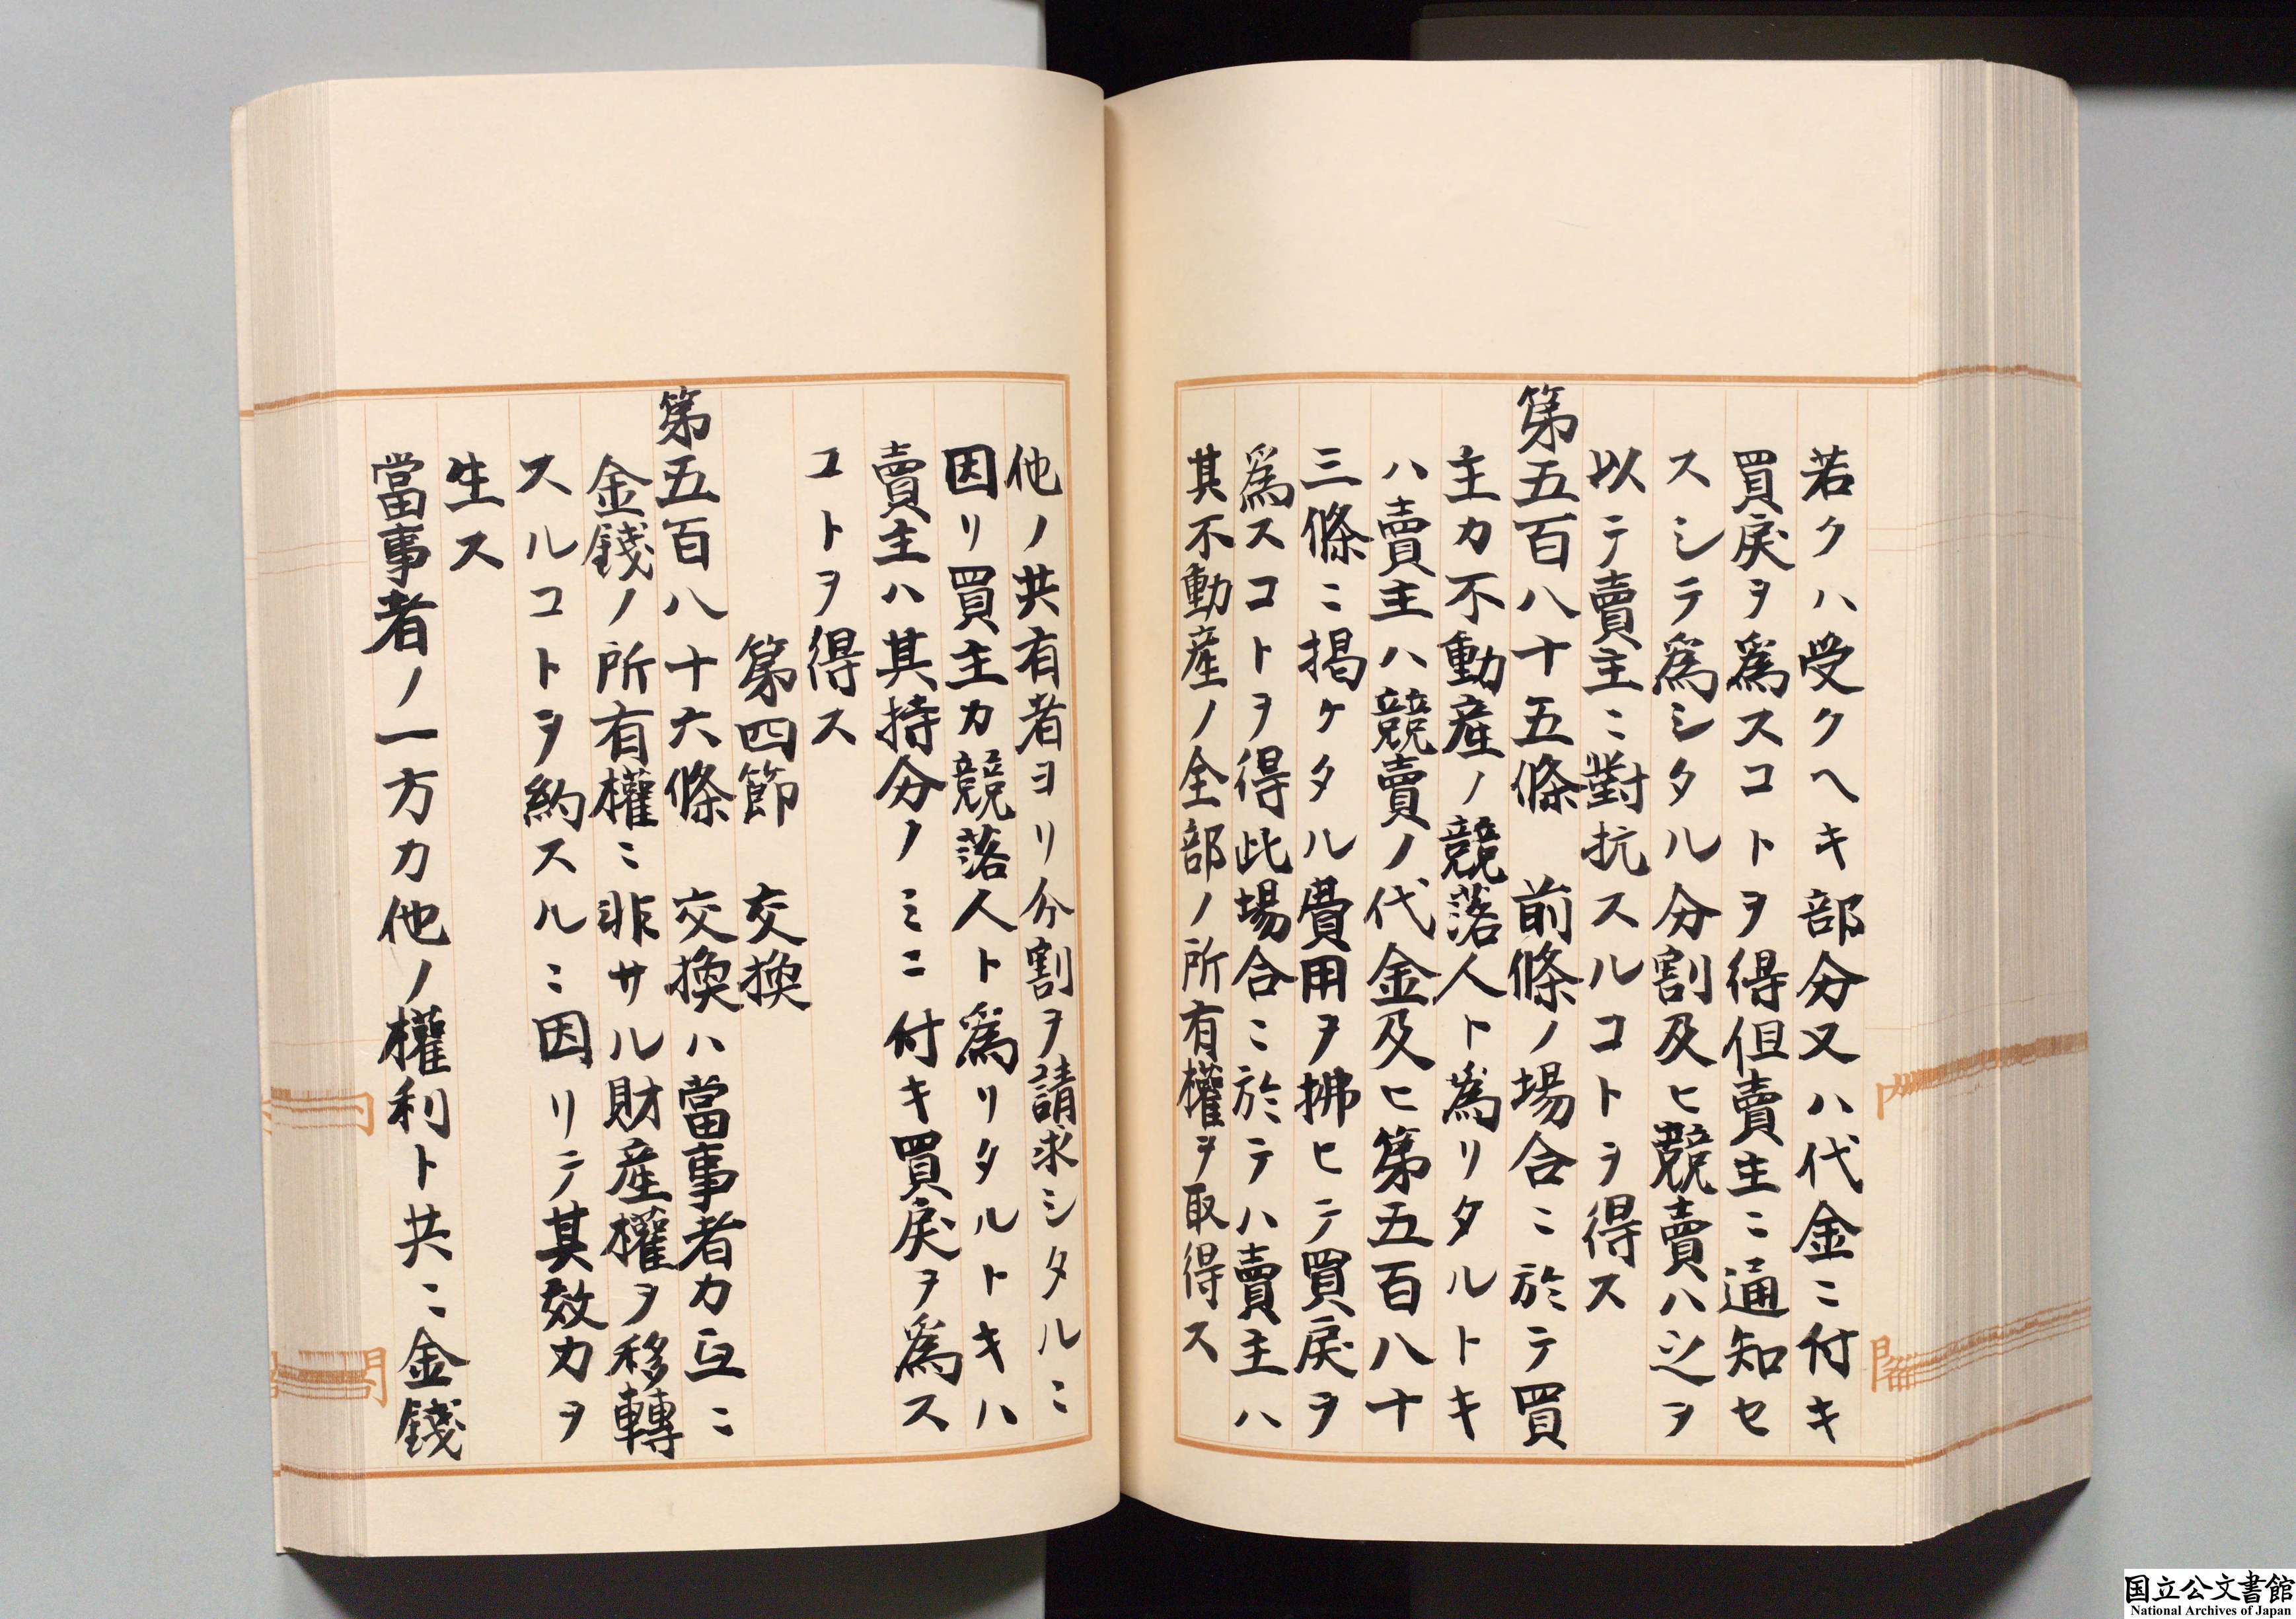 若クハ受クヘキ部分又ハ代金ニ付キ
買戾ヲ爲スコトヲ得但賣主ニ通知セ
スシテ爲シタル分割及ヒ競賣ハ之ヲ
以テ賣主ニ對抗スルコトヲ得ス
第五百八十五條 前條ノ場合ニ於テ買
主カ不動產ノ競落人ト爲リタルトキ
ハ賣主ハ競賣ノ代金及ヒ第五百八十
三條ニ揭ケタル費用ヲ拂ヒテ買戾ヲ
爲スコトヲ得此場合ニ於テハ賣主ハ
其不動產ノ全部ノ所有權ヲ取得ス
他ノ共有者ヨリ分割ヲ請求シタルニ
因リ買主カ競落人ト爲リタルトキハ
賣主ハ其持分ノミニ付キ買戾ヲ爲ス
コトヲ得ス
第四節 交換
第五百八十六條 交換ハ當事者カ互ニ
金錢ノ所有權ニ非サル財產權ヲ移轉
スルコトヲ約スルニ因リテ其效力ヲ
生ス
當事者ノ一方カ他ノ權利ト共ニ金錢
国立公文書館
National Archives of Japan